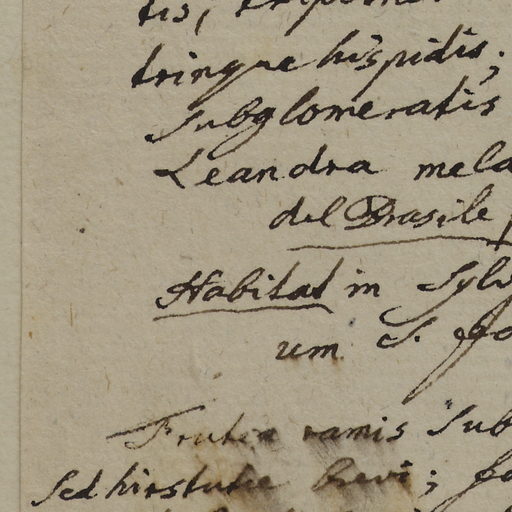 tis,
trinque hispidis;
Subglomeratis
Leandra mela
del Brasile
Habitat in Sylv
um S. Jo
Frutex ramis sub
sed hirsutie brevi; fo